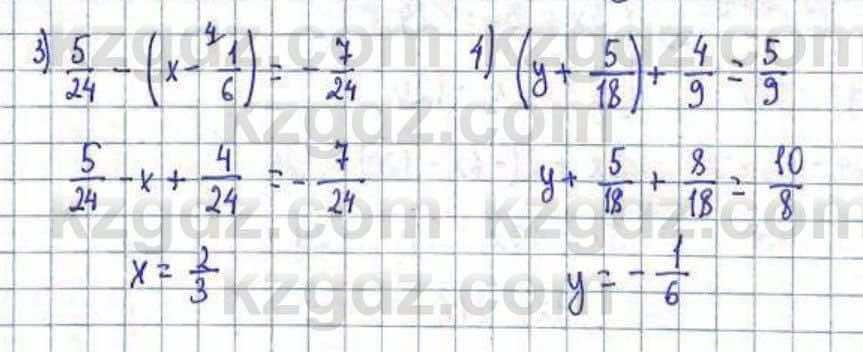 3) 5/24 - (x - ⁴1/6) = - 7/24
5/24 - x + 4/24 = - 7/24
x = 2/3
4) (y + 5/18) + 4/9 = 5/9
y + 5/18 + 8/18 = 10/8
y = - 1/6
kzgdz.com kzgdz.com
kzgdz.com
kzgdz.com kzgdz.com
kzgdz.com